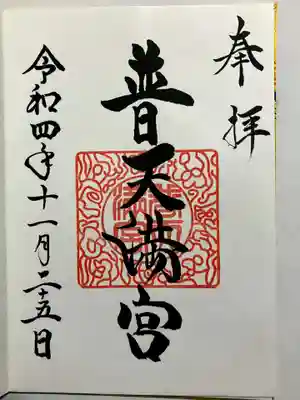 奉拝
普天満宮
令和四年十一月二十五日